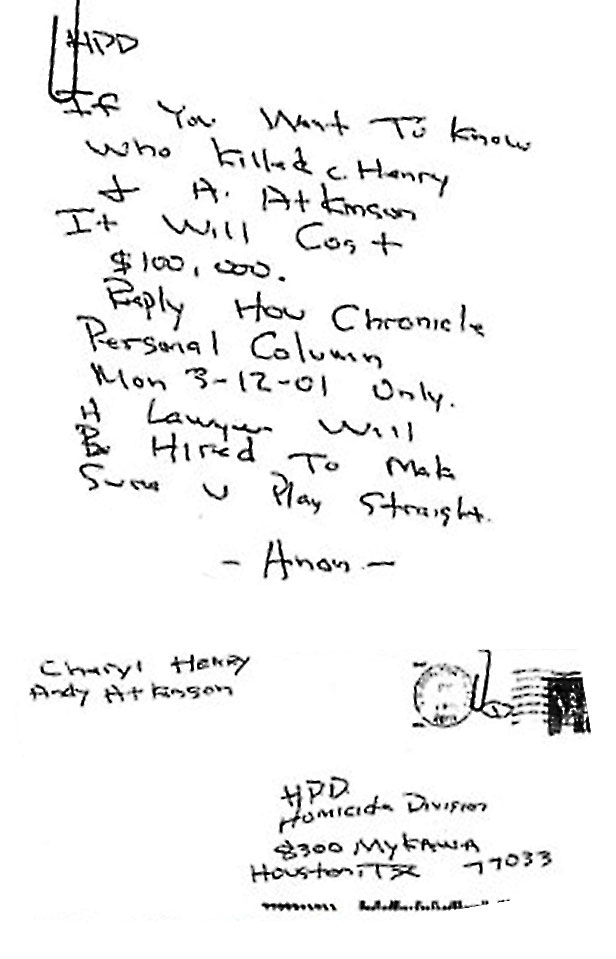 HPD
If You Want To Know
Who Killed C. Henry
& A. Atkinson
It Will Cost
$100,000.
Reply Hou Chronicle
Personal Column
Mon 3-12-01 Only.
A Lawyer Will
Be Hired To Make
Sure U Play Straight.
- Anon -
Cheryl Henry
Andy Atkinson
HPD
Homicide Division
8300 MyKAWA
Houston, TX 77033